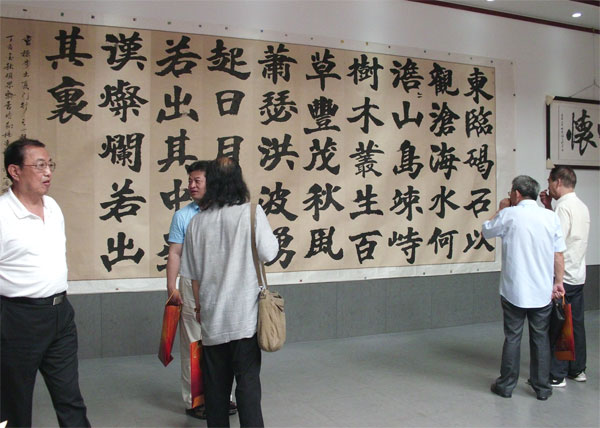 東臨碣石以
觀滄海水何
澹〻山島竦峙
樹木叢生百
草豐茂秋風
蕭瑟洪波勇
起日月
若出其中
漢燦爛若出
其裏
懷